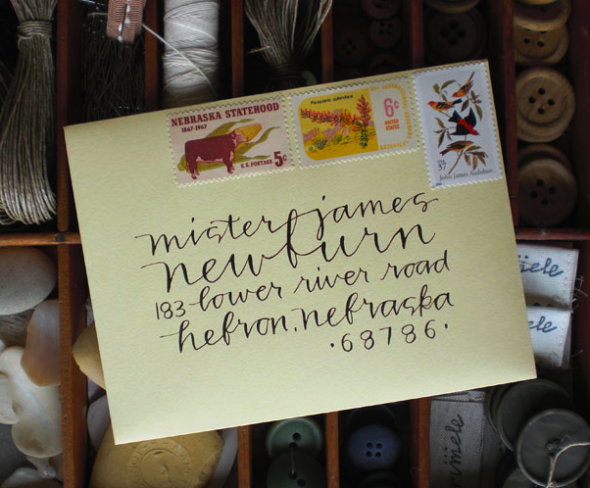 NEBRASKA STATEHOOD
1867-1967
U.S. POSTAGE 5¢
6¢
UNITED STATES
37
John James Audubon
mister james
newburn
183 lower river road
hebron, nebraska
· 68786 ·